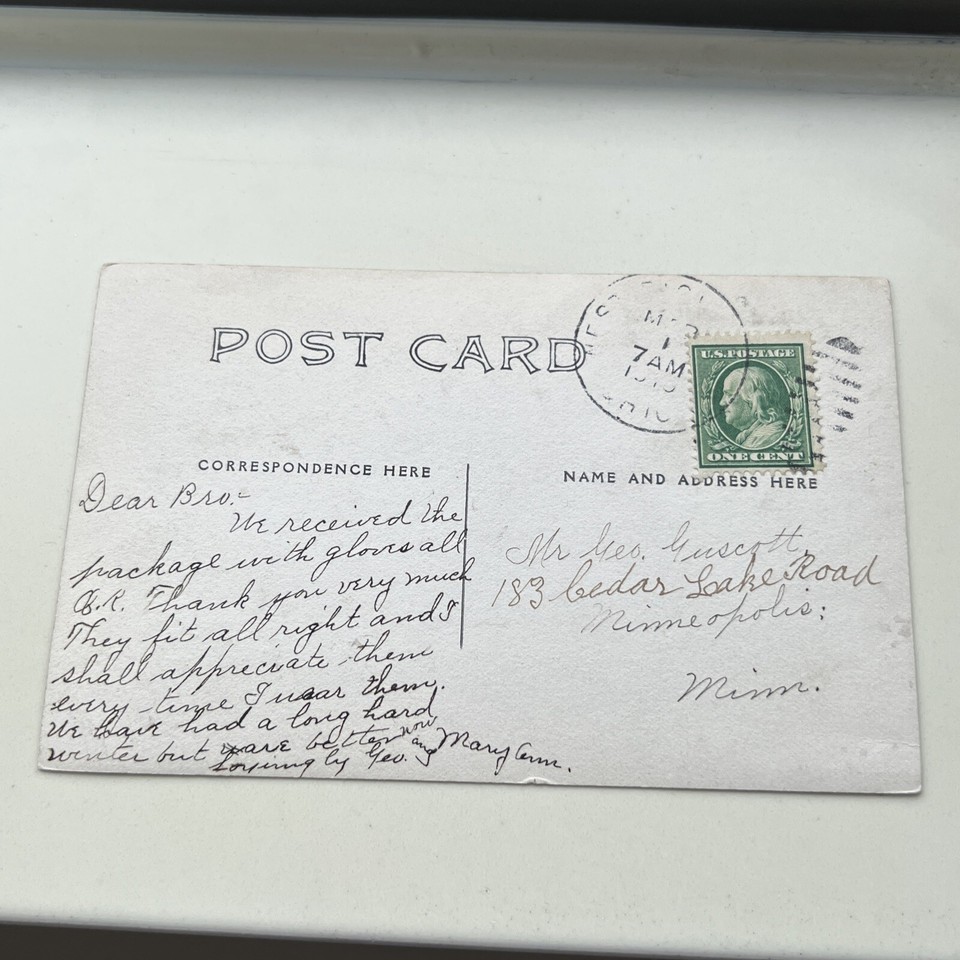 POST CARD
MAR
1
7AM
OHIO
U.S. POSTAGE
ONE CENT
CORRESPONDENCE HERE
NAME AND ADDRESS HERE
Dear Bro:-
We received the
package with gloves all
O.K. Thank you very much
They fit all right and I
shall appreciate them
every time I wear them.
We have had a long hard
winter but are better now
Lovingly Geo. and Mary Ann.
Mr Geo. Guscott,
183 Cedar Lake Road
Minneopolis:
Minn.